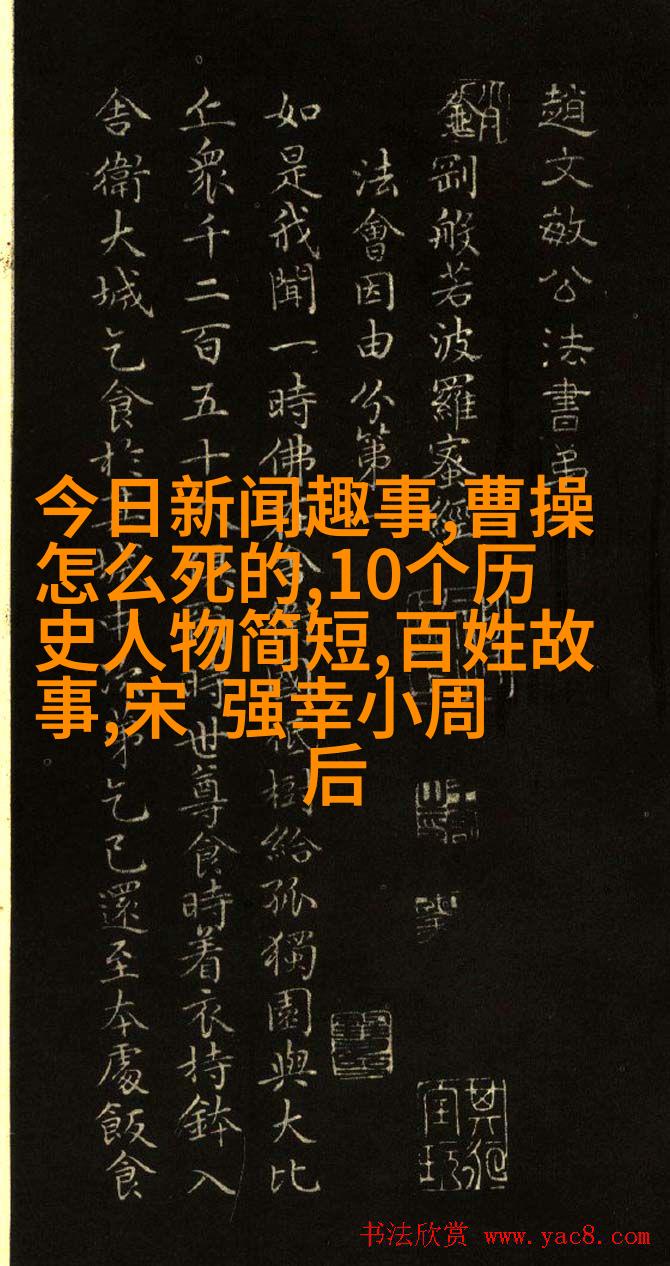 趙文敏公法書弟
金剛般若波羅蜜經
法會因由分第
如是我聞一時佛在舍衛國祇樹給孤獨園與大比
丘衆千二百五十人俱爾時世尊食時着衣持鉢入
舍衛大城乞食於其城中次第乞已還至本處飯食
今日新闻趣事,曹操
怎么死的,10个历
史人物简短,百姓故
事,宋 强幸小周
后
书法欣赏 www.yac8.com